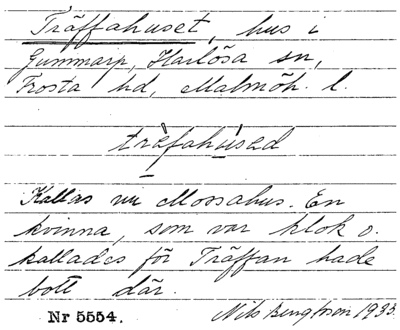 Träffahuset, hus i
Gummarp, Harlösa sn,
Frosta hd, Malmöh. l.
träfahùsəd
Kallas nu Mossahus. En
kvinna, som var klok o.
kallades för Träffan hade
bott där.
Nr 5554. Nils Bengtsson 1933.